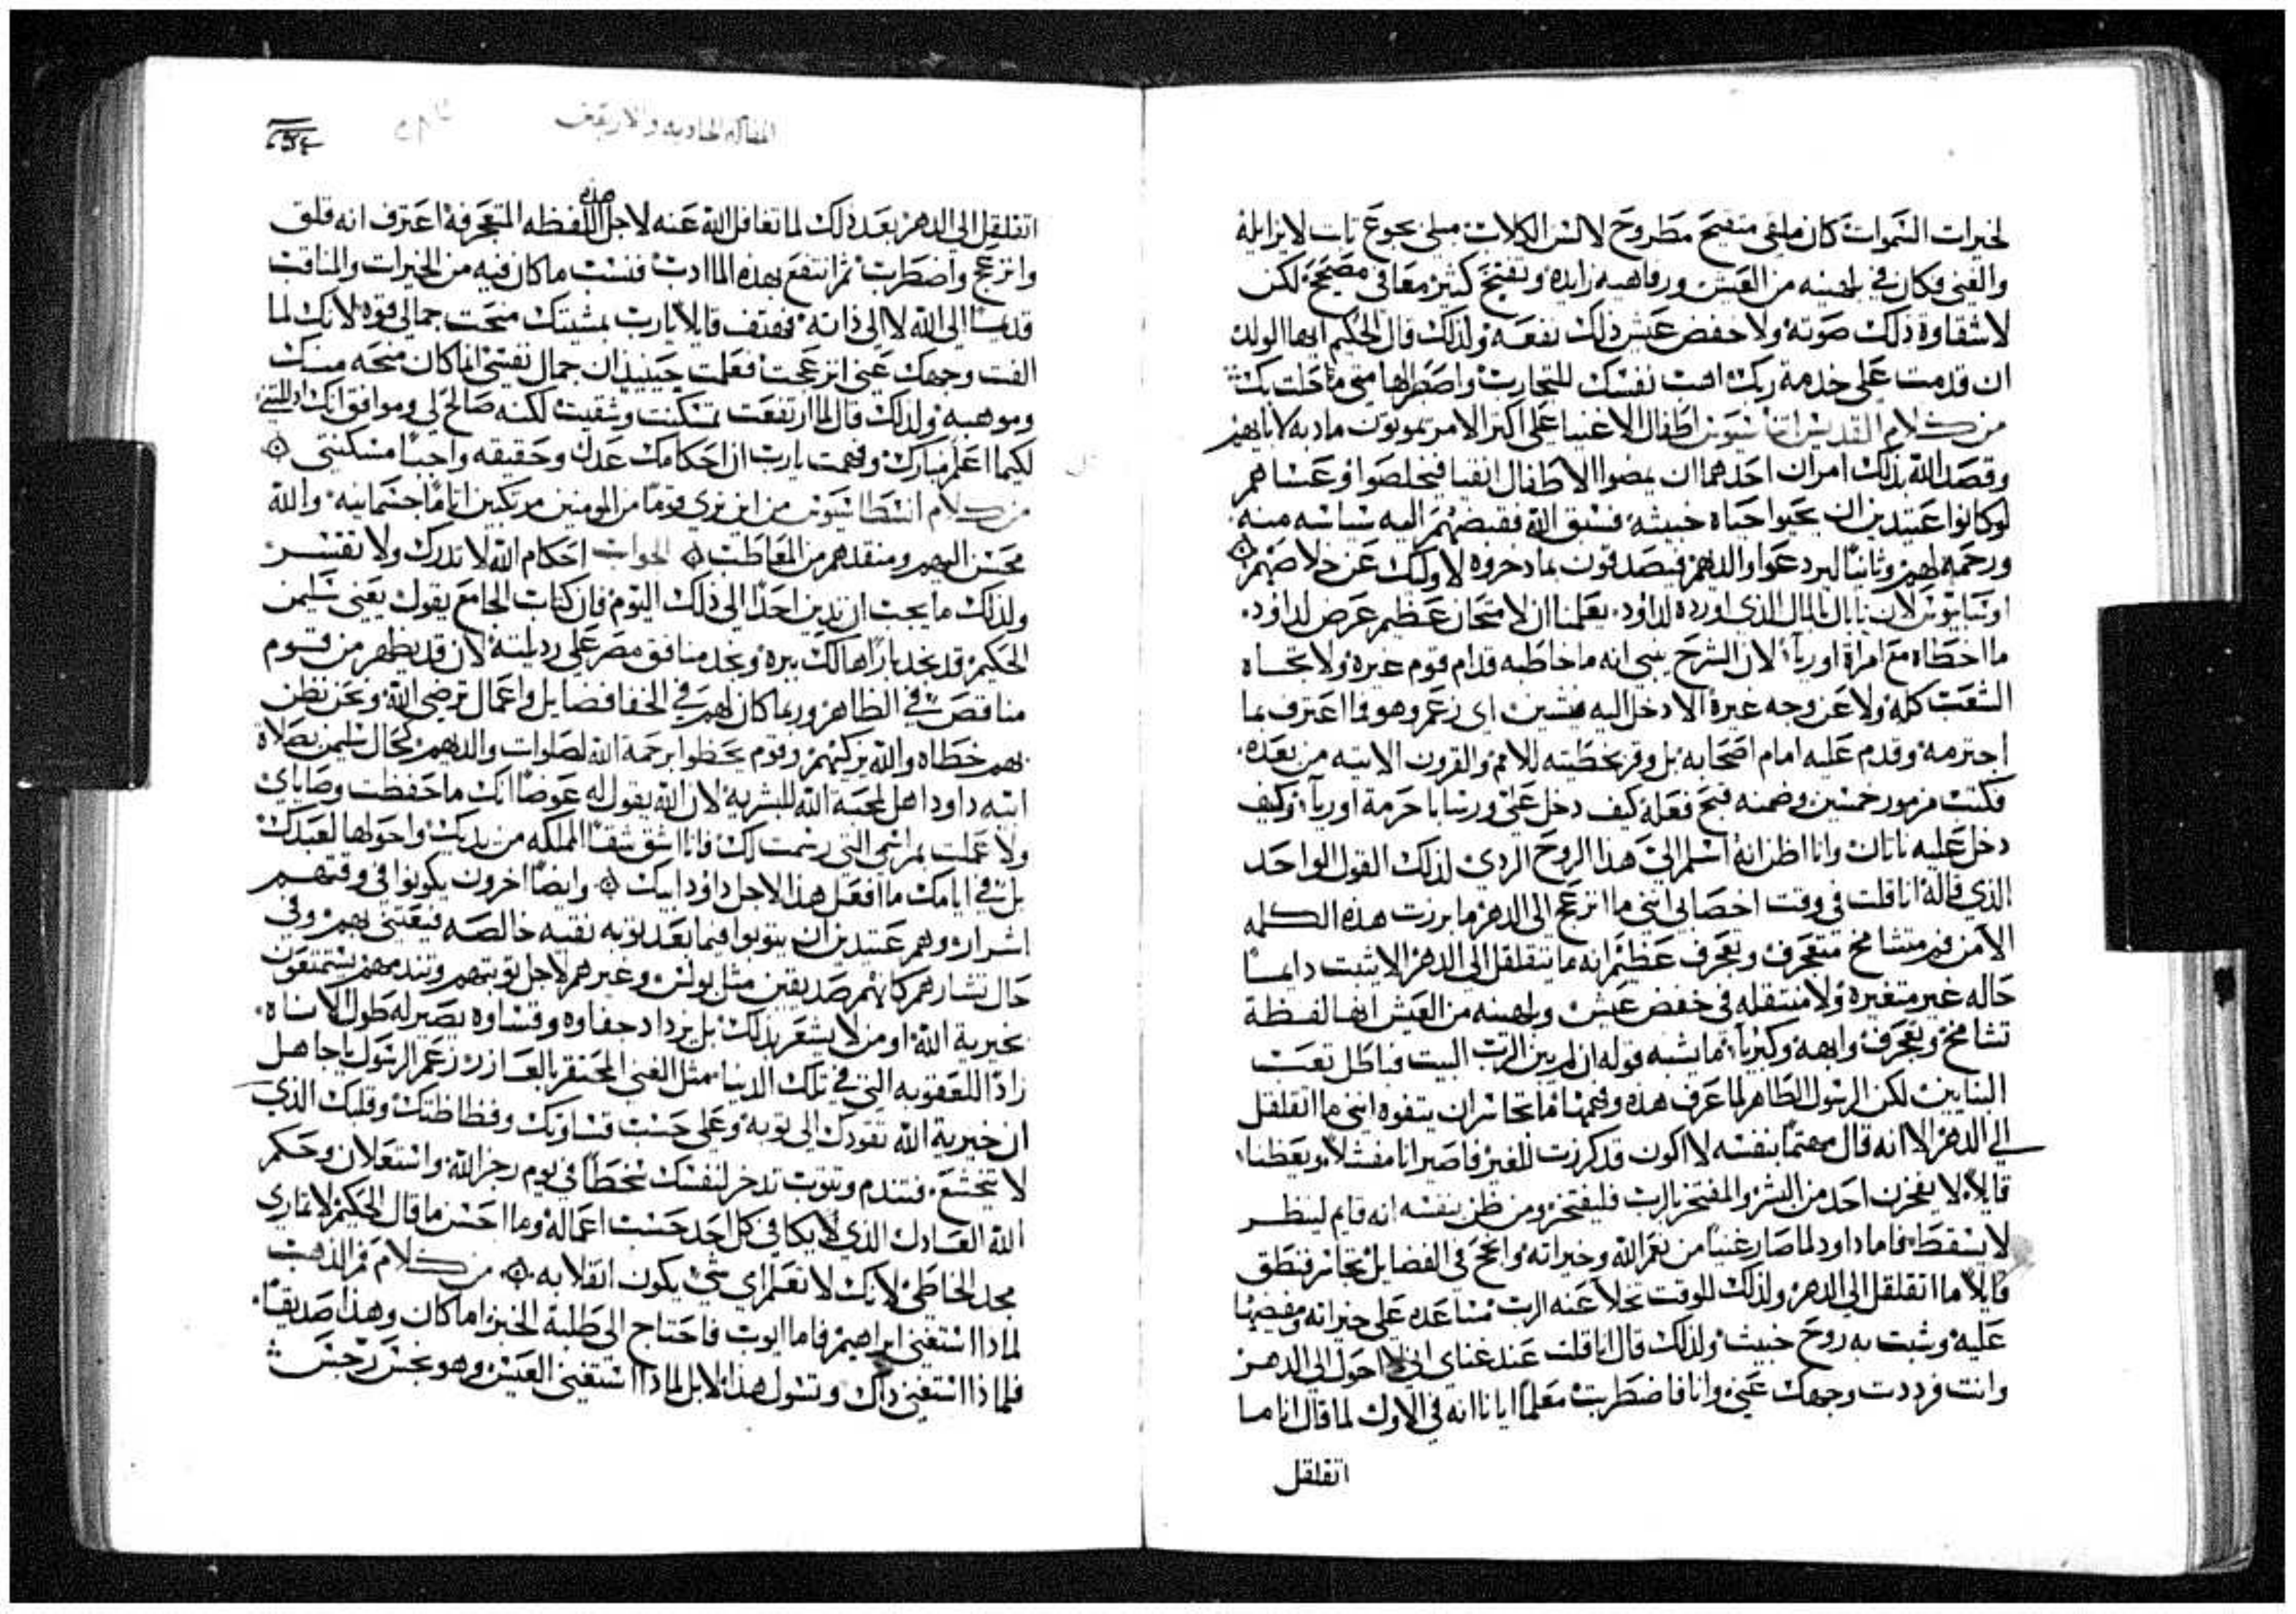 لخيرات السموات كان ملقى متقيح مطروح لالسن الكلاب مبلى بجوع تاب لا يزايله
والغنى فكان في بلهنيه من العيش ورفاهيه زايده وتقيح كثير معافى مصحح لكن
لا شقاوة ذلك صوته ولا خفض عيش ذلك نفعه ولذلك قال الحكيم ايها الولد
ان قدمت على خدمة ربك اثبت نفسك للتجارب واصطبر لها متى ما حلت بك
من كلام القديس انسطاسيوس اطفال الاغنيا على اكثر الامر يموتون مادبه لابايهم
وقصد الله بذلك امران احدهما ان يمضوا الاطفال انقيا فيخلصوا وعساهم
لو كانوا عتيدين ان يحيوا حياه خبيثه فسبق الله فقبضهم اليه سياسه منه
ورحمه لهم وثانيا ليردعوا والديهم فيصدقون بما ذخروه لاوليك عن خلاصهم
اوسابيوس لان نابال بالمال الذي اورده لداود يعلمنا ان لامتحان عظيم عرض لداود
ما اخطاه مع امراة اوريا لان الشرح يبني انه ما خاطبه قدام قوم غيره ولا تجاه
الشعب كله ولا عن وجه عبرة الا دخل اليه فيشين اي زعم وهو فما اعترف بما
اجترمه وقدم عليه امام اصحابه بل وقر بخطيته للامم والقرون الاتيه من بعده
فكتب مزمور خمسين وضمنه قبح فعله كيف دخل على ورشابا حرمة اوريا وكيف
دخل عليه ناتان وانا اظن انه اسلم الى هذا الروح الردي لذلك القول الواحد
الذي قاله انا قلت في وقت اخصابي انني ما انزعج الى الدهر ما برزت هذه الكلمه
الا من فم متشامخ متعجرف وتعجرف عظيم انه ما يتقلقل الى الدهر الا يثبت دايما
حاله غير متغيره ولا منتقله في خفض عيش وبلهنيه من العيش انها لفظة
تشامخ وتعجرف وابهه وكبريا ما يشبه قوله ان لم يبن الرب البيت فباطل تعب
البنايين لكن الرسول الطاهر لما عرف هذه وفهمها فما تجاسر ان يتفوه انني ما اتقلقل
الى الدهر الا انه قال مهتما بنفسه لا اكون قد كرزت للغير فاصير انا مفشلا ويعظنا
قايلا لا يفخرن احد من البشر والمفتخر بالرب فليفتخر ومن ظن بنفسه انه قايم لينظر
لا يسقط فاما داود لما صار غنيا من نعم الله وخيراته وانجح في الفضايل تجاسر فنطق
قايلا ما اتقلقل الى الدهر ولذلك للوقت تخلا عنه الرب مساعده على خيراته ومفيضها
عليه وشبت به روح خبيث ولذلك قال انا قلت عند غناي اني لا احول الى الدهر
وانت فرددت وجهك عني وانا فاضطربت معلما ايانا انه في الاول لما قال انا ما
اتقلقل
المقاله الحاديه والاربعين
اتقلقل الى الدهر بعد ذلك لما تغافل الله عنه لاجل هذه اللفظه المتعجرفه اعترف انه قلق
وانزعج واضطرب ثم انتفع بهذه المادب فنسب ما كان فيه من الخيرات والمناقب
قديما الى الله لا الى ذاته فهتف قايلا يارب بمشيتك منحت جمالي قوه لانك لما
الفت وجهك عني انزعجت فعلمت حينيذ ان جمال نفسي انما كان منحه منك
وموهبه ولذلك قال لما ارتفعت تمسكنت وشقيت لكنه صالح لي وموافق انك اذللتني
لكيما اعلم مبارك وفهمت يارب ان احكامك عدل وحقيقه واجبا مسكنتي
من كلام انسطاسيوس من اين نري قوما من المومنين مرتكبين اثاما جسمانيه والله
محسن اليهم ومنقذهم من المعاطب الجواب احكام الله لا تدرك ولا تفسر
ولذلك ما يجب ان ندين احدا الى ذلك اليوم فان كتاب الجامع يقول يعني سليمن
الحكيم قد نجد بارا هالك ببره ونجد منافق مصر على رذيلته لان قد يظهر من قوم
مناقص في الظاهر وربما كان لهم في الخفا فضايل واعمال ترضي الله ونحن نظن
بهم خطاه والله يزكيهم وقوم يحظوا برحمة الله لصلوات والديهم كحال سليمن بصلاة
ابيه داود اهل لمحبة الله للبشريه لان الله يقول له عوضا انك ما حفظت وصاياي
ولا عملت بمراسمي التي رسمت لك فانا اشق شقا المملكه من يديك واحولها لعبدك
بل في ايامك ما افعل هذا لاجل داود ابيك وايضا اخرون يكونوا في وقتهم
اشرار وهم عتيدين ان يتوبوا فيما بعد توبه نقيه خالصه فيعتني بهم وفي
حال شرارهم كانهم صديقين مثل بولس وغيرهم لاجل توبتهم وتندمهم يستمتعون
بخيرية الله او من لا يشعر بذلك بل يزداد جفاوه وقساوه يصير له طول الاناه
زادا للعقوبه التي في تلك الدنيا مثل الغني المحتقر بالعازر زعم الرسول يا جاهل
ان خيرية الله تقودك الى توبه وعلى حسب قساوتك وفظاظتك وقلبك الذي
لا يخشع فتندم وتتوب تدخر لنفسك سخطا في يوم رجز الله واستعلان وحكم
الله العادل الذي يكافي كل احد حسب اعماله وما احسن ما قال الحكيم لا تماري
مجد الخاطي لانك لا تعلم اي شي يكون انقلابه من كلام فم الذهب
لماذا استغنى ابراهيم فاما ايوب فاحتاج الى طلبة الخبز اما كان وهذا صديقا
فلماذا استغنى ذاك وتسول هذا لا بل لماذا استغنى العيس وهو نجس رجس